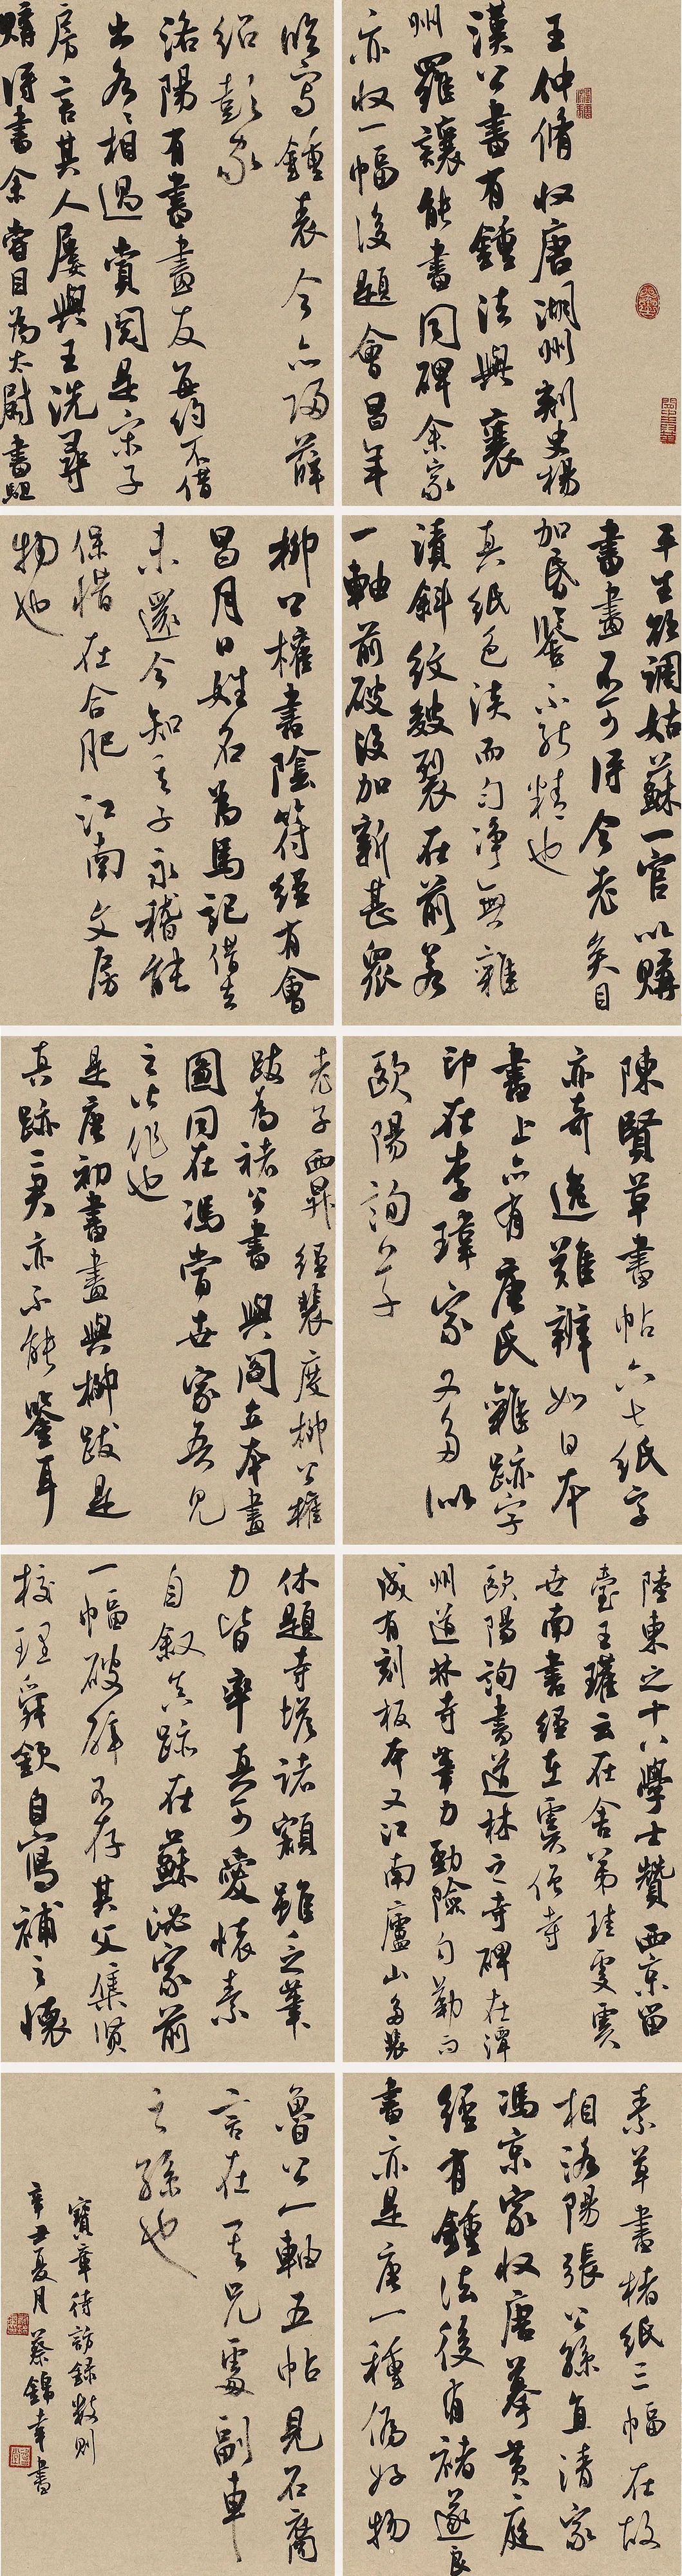 王仲脩收唐湖州刺史楊
漢公書有鍾法與襄
州羅讓能書同碑余家
亦收一幅後題會昌年
臨寫鍾表今亦歸薛
紹彭家
洛陽有書畫友每約不借
出各各相過賞閱是宋子
房言其人屢與王詵尋
購得書余嘗目為太尉書駔
平生欲調姑蘇一官以購
書畫不可得今老矣目
加昏鑒不能精也
真紙色淡而勻淨無雜
漬斜紋皴裂在前若
一軸前破後加新甚眾
柳公權書陰符經有會
昌月日姓名為馬記借去
未還今知其子永稽能
保惜在合肥江南文房
物也
陳賢草書帖六七紙字
亦奇逸難辨如日本
書上亦有唐氏雜跡字
印在李瑋家又多似
歐陽詢公子
老子西昇經裴度柳公權
跋為褚公書與閻立本畫
圖同在馮當世家吾見
之比作也
是唐初書畫與柳跋是
真跡二君亦不能鑒耳
陸柬之十八學士贊西京留
臺王瓘云在舍弟珪處虞
世南書經在虞僧寺
歐陽詢書道林之寺碑在潭
州道林寺筆力勁險勾勒而
成有刻板本又江南廬山多裴
休題寺塔諸額雖乏筆
力皆率真可愛懷素
自敘真跡在蘇泌家前
一幅破碎不存其父集賢
校理舜欽自寫補之懷
素草書楮紙三幅在故
相洛陽張公孫直清家
馮京家收唐摹黃庭
經有鍾法後有褚遂良
書亦是唐一種偽好物
魯公一軸五帖見石裔
言在其兄處副車
之孫也
寶章待訪錄數則
辛丑夏月蔡錦幸書